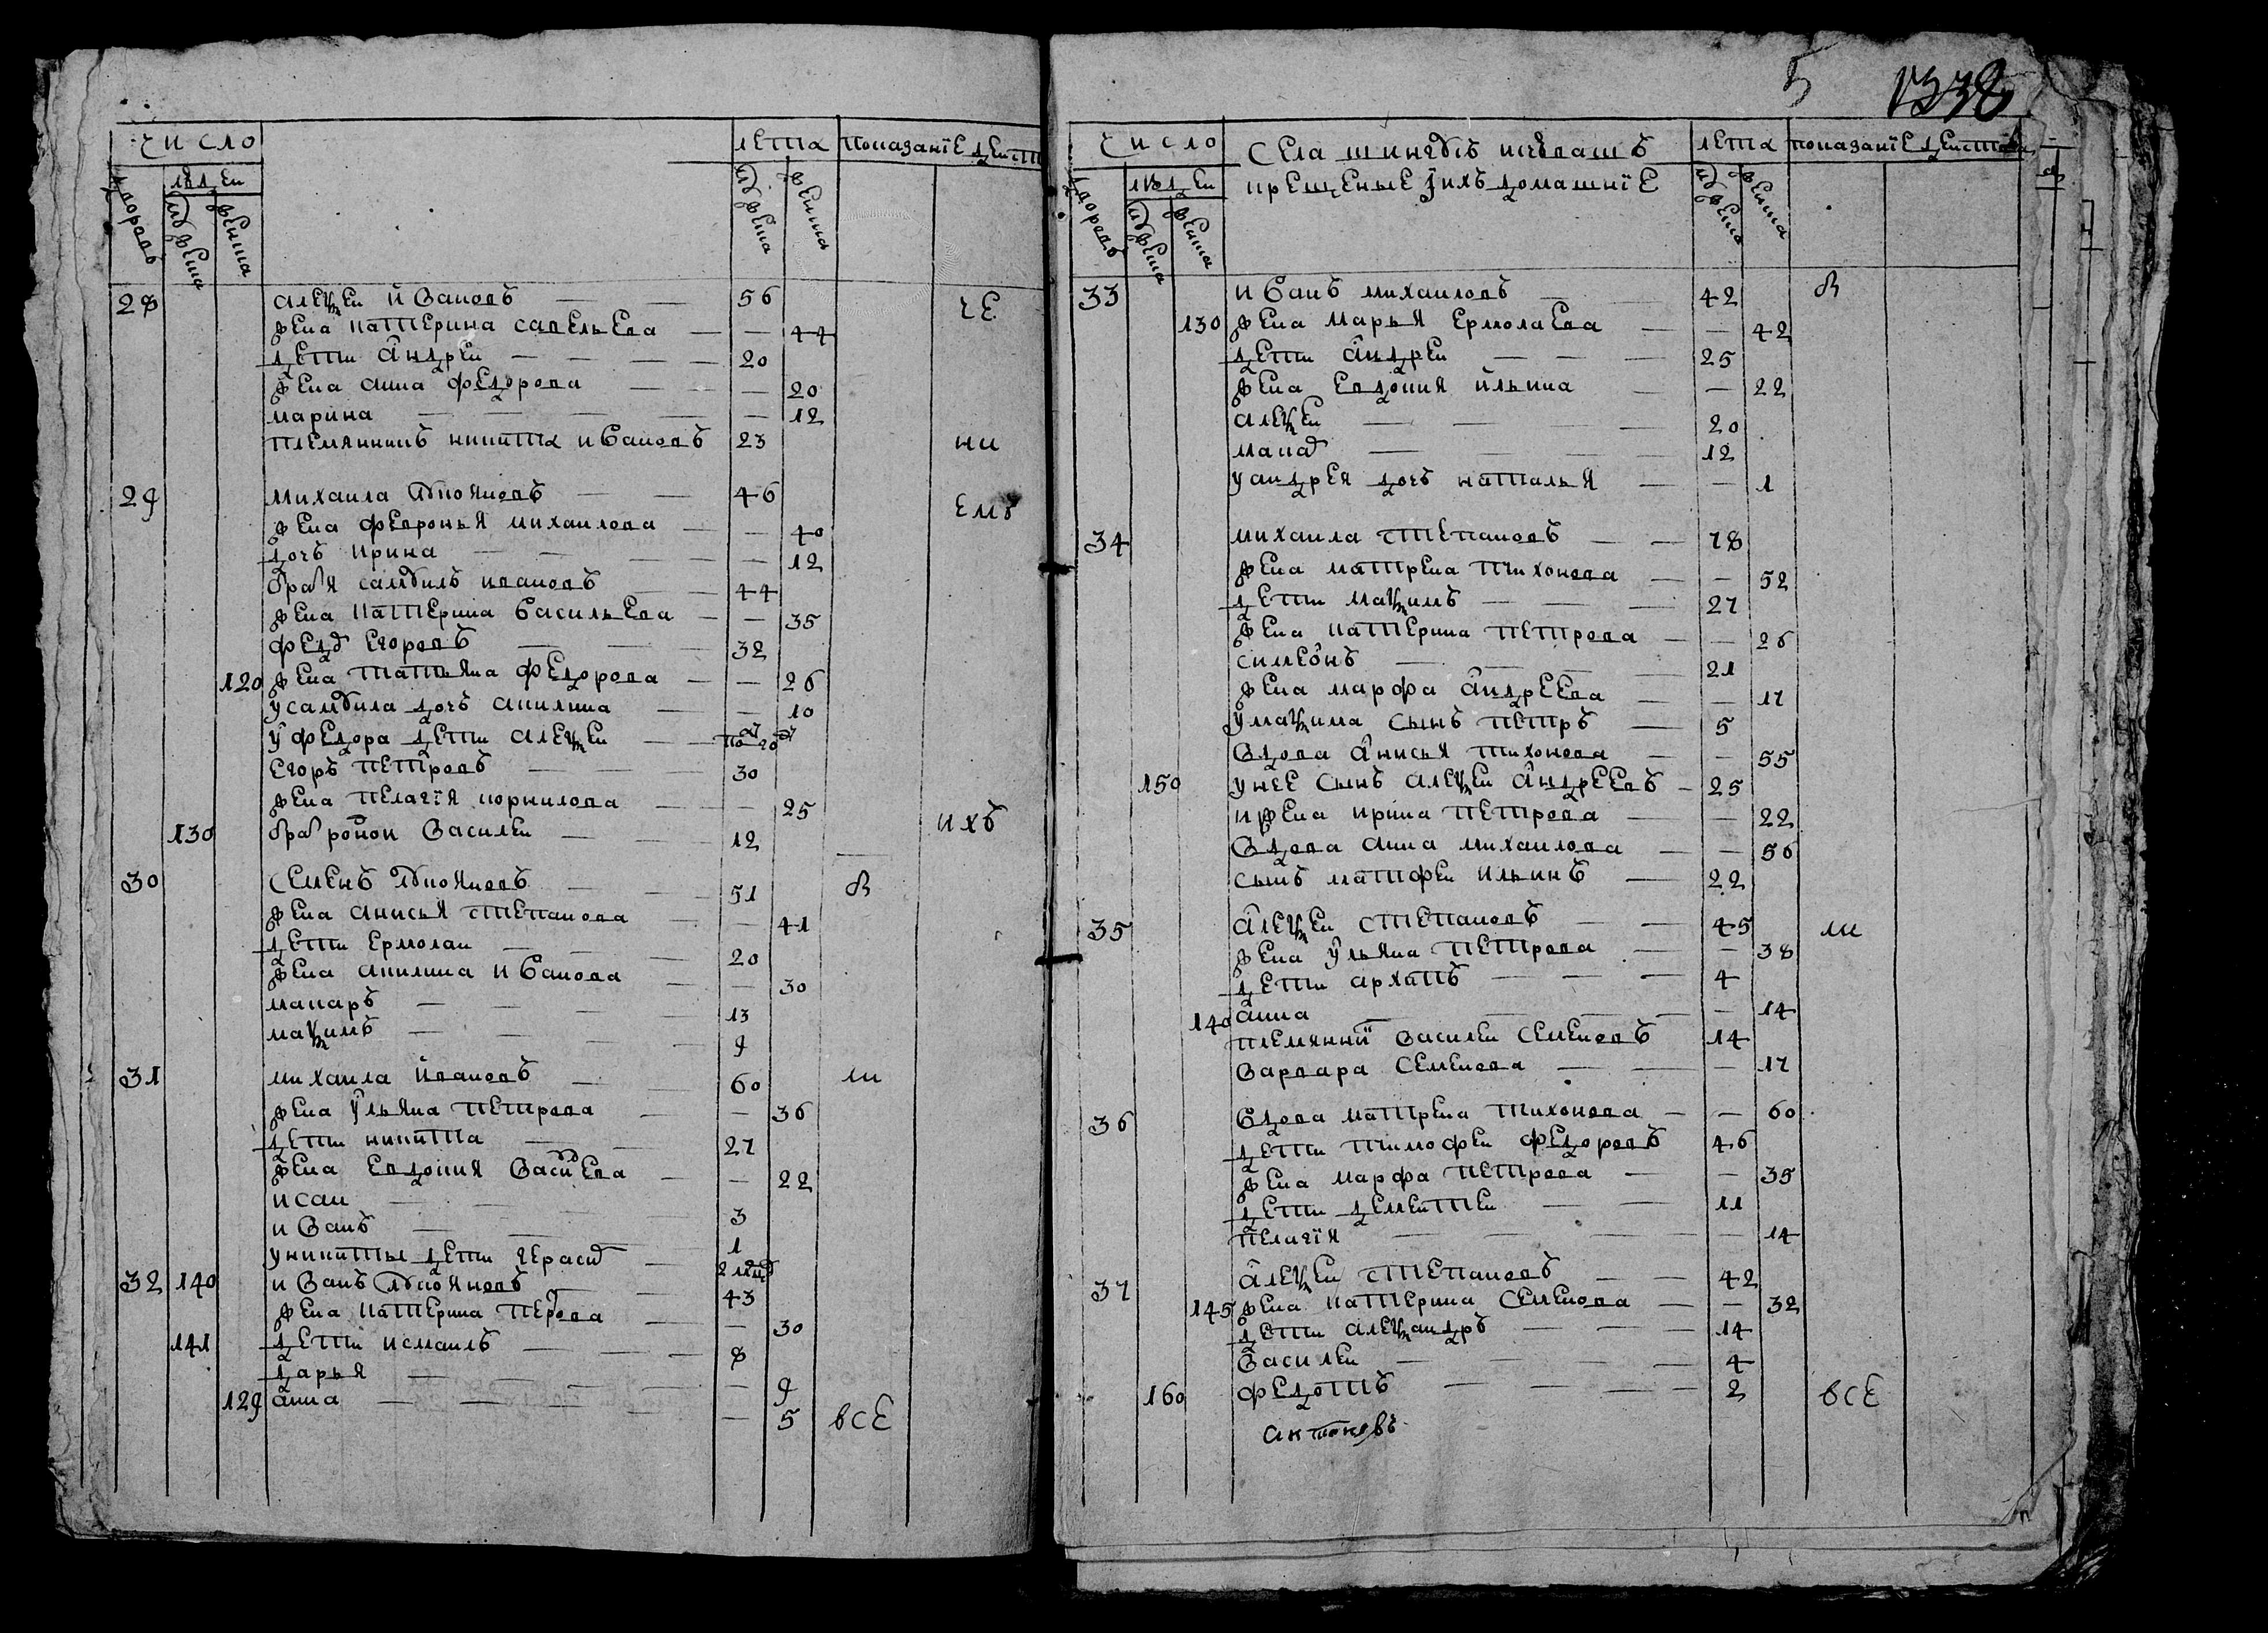 число
лета
показанїе действ
дворовъ
людеи
мужеска
женска
мужеска
женска
28 алеѯеи ивановъ — — 56
жена катерина савельева — — 44
дети андреи — — — — 20
жена анна федорова — — 20
марина — — — — — 12
племянникъ никита ивановъ 23
че
ни
29 михаила — — 46
жена февронья михаилова — — 40
дочь ирина — — — — 12
братья самуилъ ивановъ — — 44
жена катерина васильева — — 35
федоръ егоровъ — — — 32
120 жена татьяна федорова — — 26
у самуила дочь акилина — — 10
у федора дети алеѯеи — —
егоръ петровъ — — — 30
жена пелагїя корнилова — — 25
130 брат роднои василеи — — 12
ему
ихъ
30 семенъ — — 51 в
жена анисья степанова — — 41
дети ермолаи — — — 20
жена акилина иванова — — 30
макаръ — — — — 13
маѯимъ — — — — 9
31 михаила ивановъ — — 60 ли
жена ульяна петрова — — 36
дети никита — — 27
жена евдокия васильева — — 22
исаи — — — — 3
иванъ — — — 1
у никиты дети герасим — 2
32 140 иванъ — 43
жена катерина петрова — — 30
141 дети исмаилъ — — — 8
дарья — — — — — 9
129 анна — — — — — 5 все
5 1338
число
дворовъ
людеи
мужеска
женска
села кувакашъ
крещеные и ихъ домашнїе
лета
мужеска
женска
показанїе действ
33 иванъ михаиловъ — — 42 в
130 жена марья ермолаева — — 42
дети андреи — — — 25
жена евдокия ильина — — 22
алеѯеи — — — — 20
макар — — — — 12
у андрея дочь наталья — — 1
34 михаила степановъ — — 78
жена матрена тихонова — — 52
дети маѯимъ — — — 27
жена катерина петрова — — 26
симеонъ — — — 21
жена марфа андреева — — 17
у маѯима сынъ петръ — 5
вдова анисья тихонова — — 55
150 у нее сынъ алеѯеи андреевъ — 25
и жена ирина петрова — — 22
вдова анна михаилова — — 56
сынъ матфеи ильинъ — 22
35 алеѯеи степановъ — — 45 ли
жена ульяна петрова — — 38
дети архипъ — — — 4
140 анна — — — — — 14
племянники василеи семеновъ 14
варвара семенова — — — 17
36 вдова матрена тихонова — — 60
дети тимофеи федоровъ 46
жена марфа петрова — — 35
дети дементеи — — 11
пелагїя — — — — — 14
37 алеѯеи степановъ — — 42
145 жена катерина семенова — — 32
дети алеѯандръ — — — 14
василеи — — — — 4
160 федотъ — — — — 2 все
антоновъ